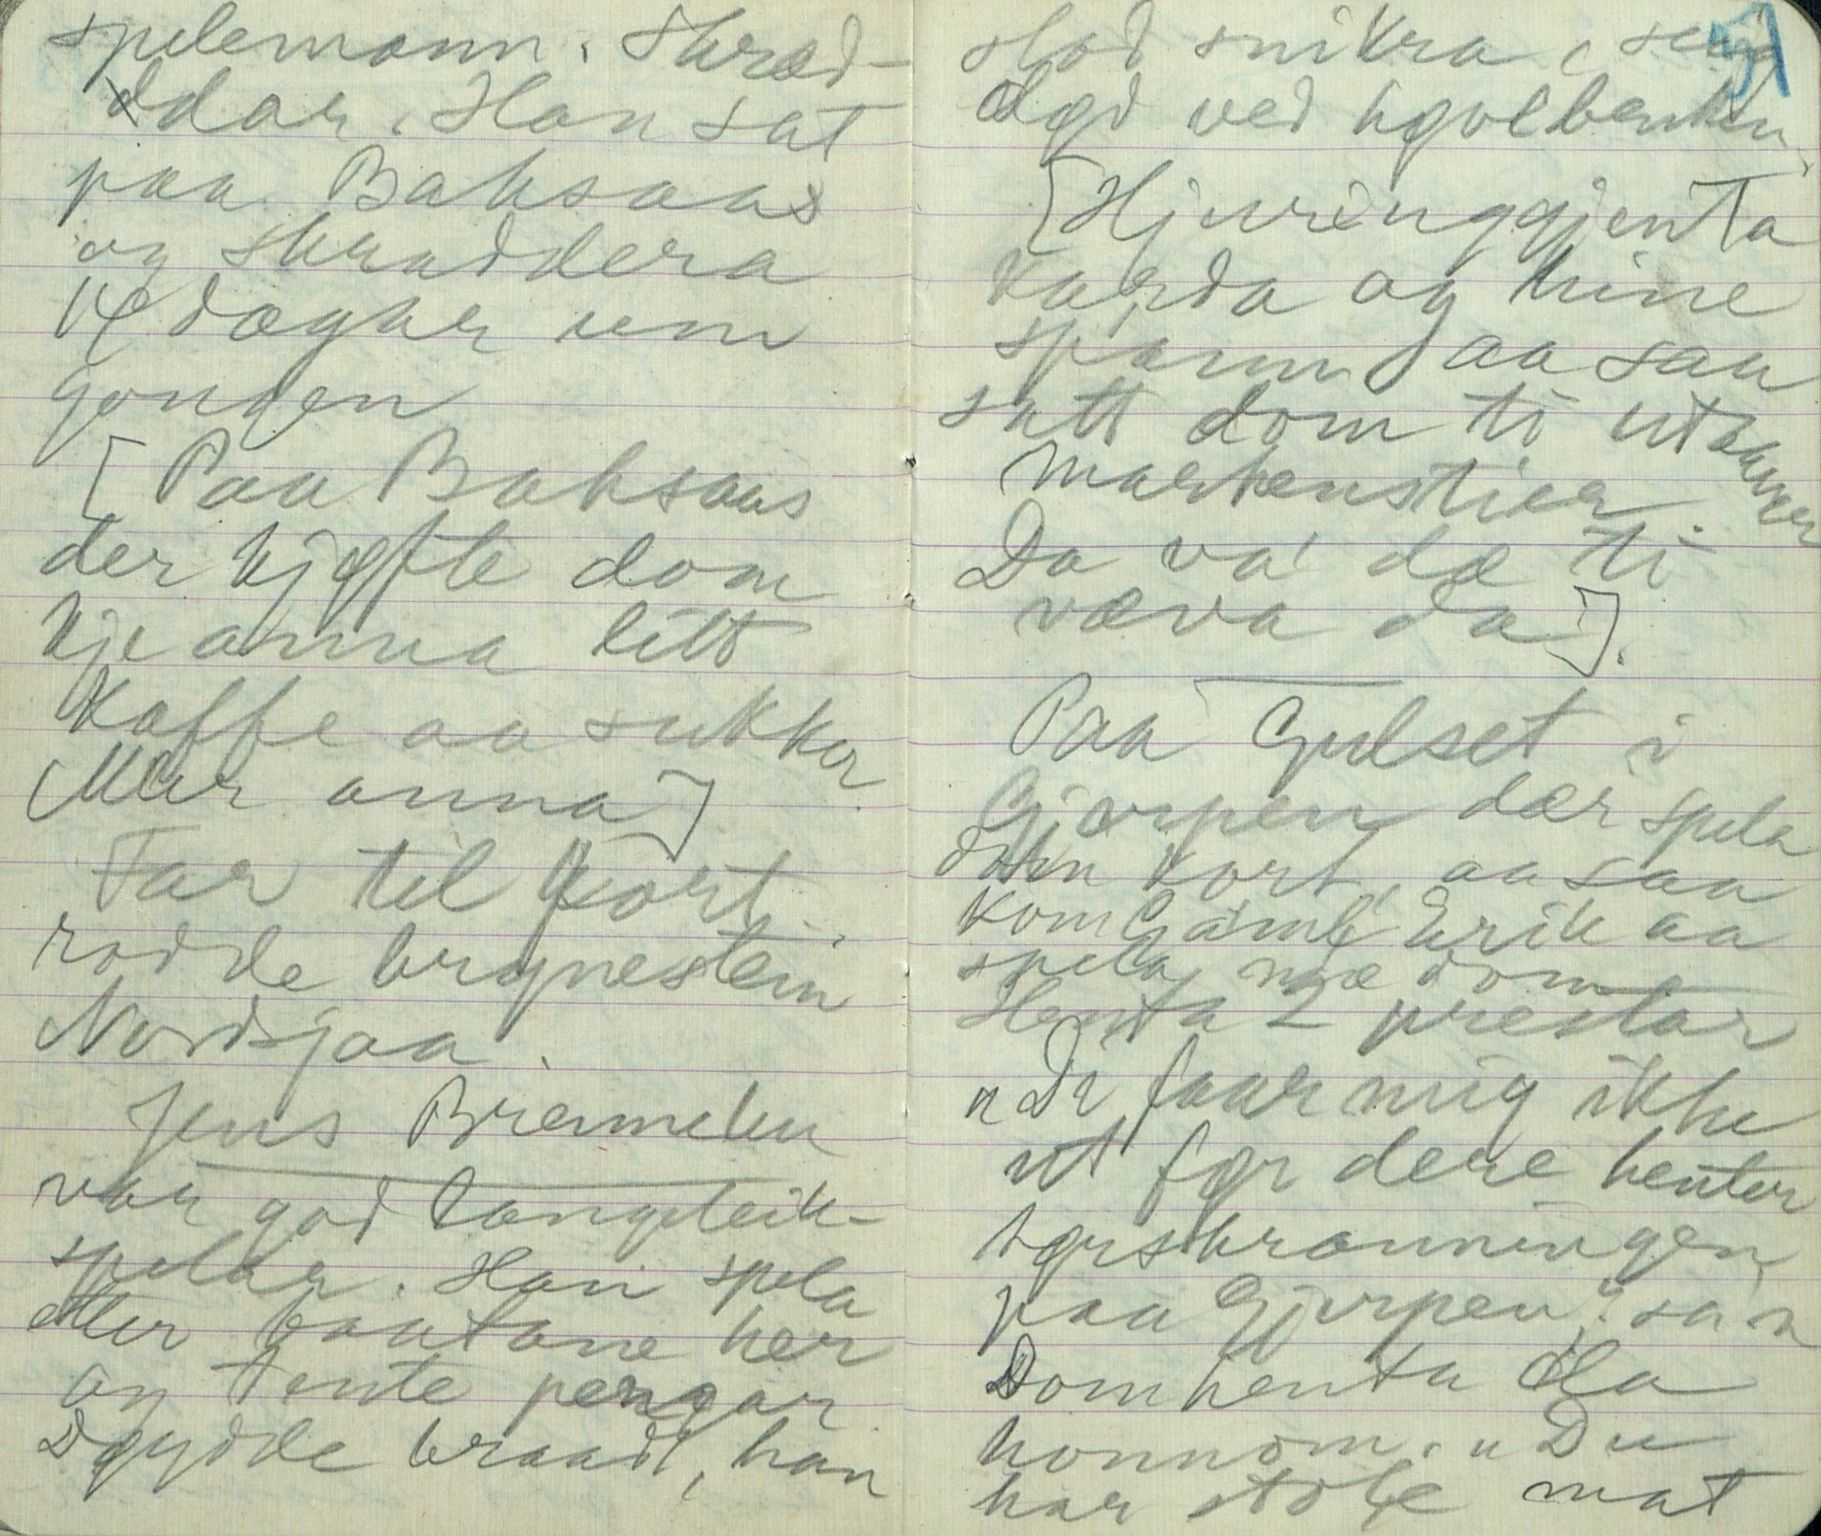 spelemann. Skræd-
ddar. Han sat
paa Baksaas
og skræddera
14 dagar um
gongen
[Paa Baksaas
der kjøfte dom
kje anna litt
kaffe aa sukker
Mær anna]
Far til Kort.
rodde brynestein
Nordsjaa.
Jens Bræmeken
var god langeleik-
spelar. Han spela
etter baatane her
og tente pengar
Døydde braadt, han
stod snikra,
død ved høvlbenken.
[Hjuringgjenta
karda og hine
spann aa saa
satt dom ti
Martenstier.
Da va' dæ ti
væva da].
Paa Gulset i
Gjerpen dær spela
dom kort, aa saa
kom Gamle Erik aa
spela mæ dom
Henta 2 prestar
"Di faar mig ikke
ut før dere henter
hørskranningen
paa Gjerpen" sa'n
Dom henta da
honnom. "Du
har stole mat